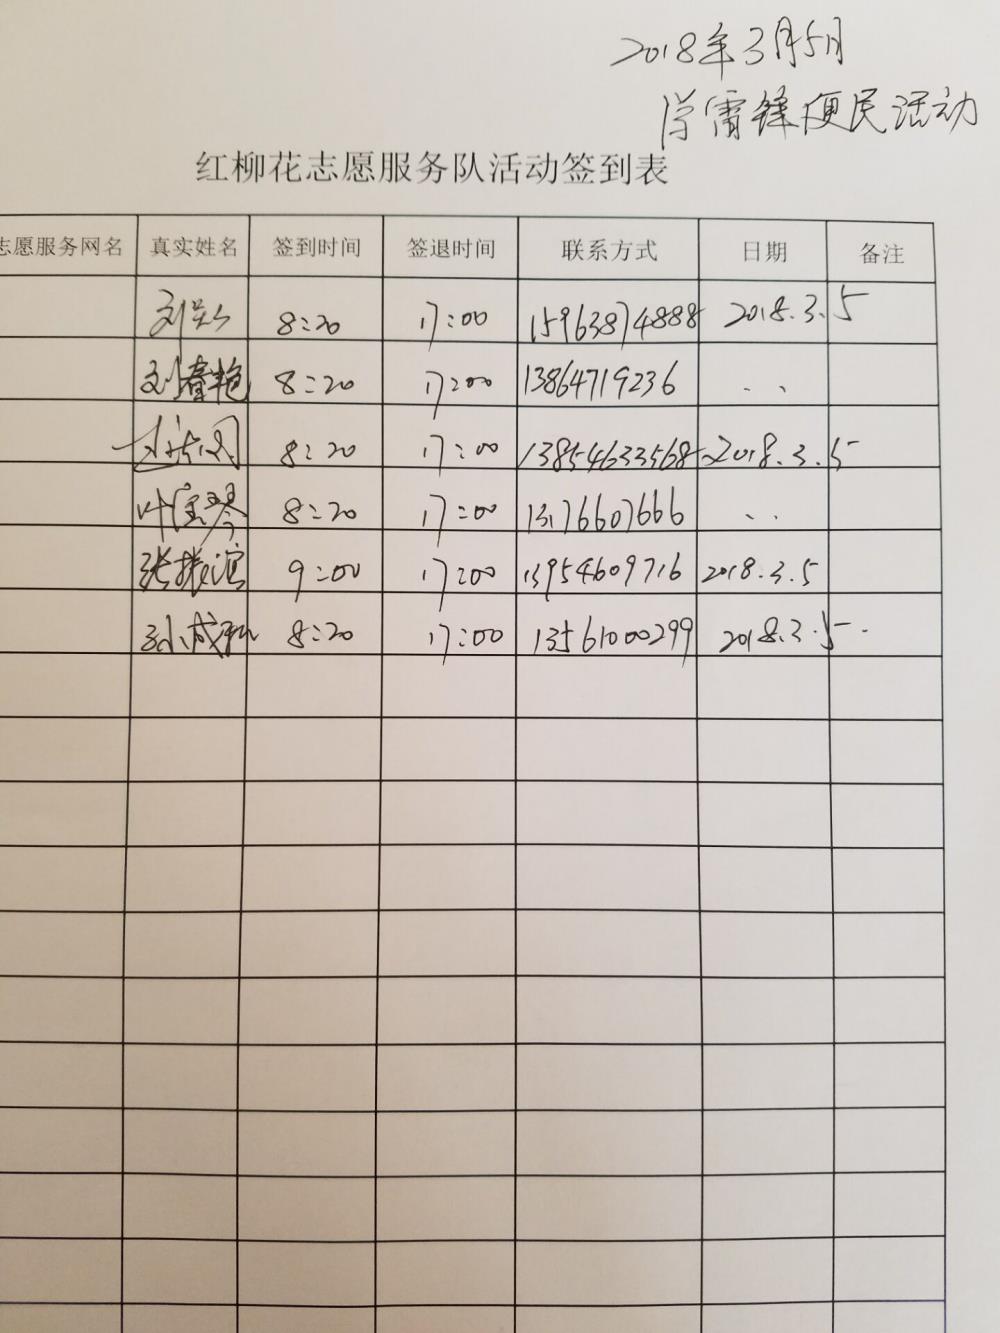 2018年3月5日
学雷锋便民活动
红柳花志愿服务队活动签到表
志愿服务网名 真实姓名 签到时间 签退时间 联系方式 日期 备注
刘 8:20 17:00 15963874888 2018.3.5
刘春艳 8:20 17:00 13864719236 . .
8:20 17:00 13854633568 2018.3.5
叶宝琴 8:20 17:00 13176607666 . .
张振滨 9:00 17:00 13954609716 2018.3.5
孙成 8:20 17:00 13561000299 2018.3.5.